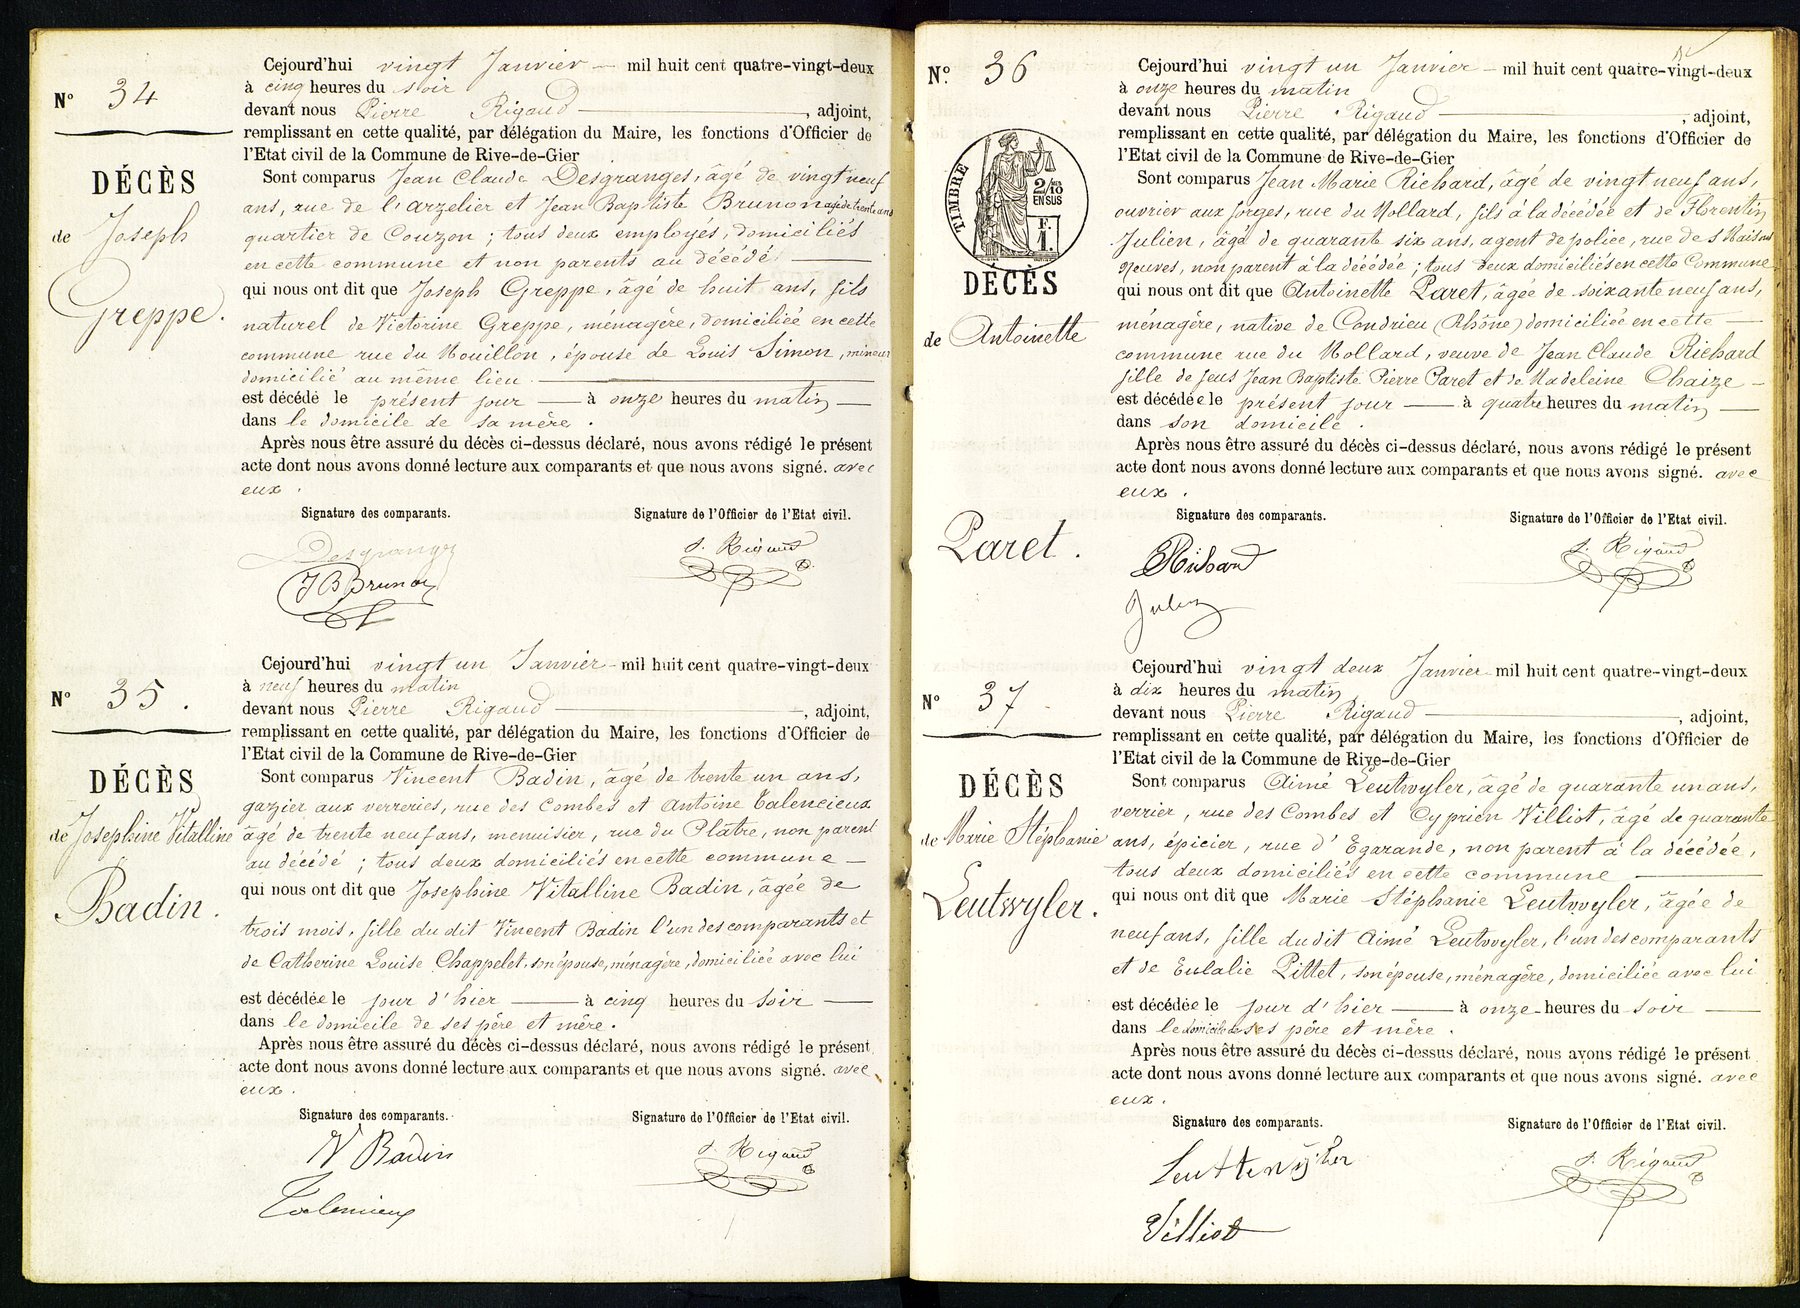 N° 34
DÉCÈS
de Joseph
Greppe.
Cejourd'hui vingt Janvier — mil huit cent quatre-vingt-deux
à cinq heures du soir
devant nous Pierre Rigaud —, adjoint,
remplissant en cette qualité, par délégation du Maire, les fonctions d'Officier de
l'Etat civil de la Commune de Rive-de-Gier
Sont comparus Jean Claude Desgranges, âgé de vingt neuf
ans, rue de l'arzelier et Jean Baptiste Brunon agé de trente ans
quartier de Couzon ; tous deux employés, domiciliés
en cette commune et non parents au décédé —
qui nous ont dit que Joseph Greppe, âgé de huit ans, fils
naturel de Victorine Greppe, ménagère, domiciliée en cette
commune rue du Mouillon, épouse de Louis Simon, mineur
domicilié au même lieu —
est décédé le présent jour — à onze heures du matin —
dans le domicile de sa mère.
Après nous être assuré du décès ci-dessus déclaré, nous avons rédigé le présent
acte dont nous avons donné lecture aux comparants et que nous avons signé. avec
eux.
Signature des comparants. Signature de l'Officier de l'Etat civil.
Desgranges P. Rigaud
JB Brunon
N° 35.
DÉCÈS
de Josephine Vitalline
Badin.
Cejourd'hui vingt un Janvier - mil huit cent quatre-vingt-deux
à neuf heures du matin
devant nous Pierre Rigaud —, adjoint,
remplissant en cette qualité, par délégation du Maire, les fonctions d'Officier de
l'Etat civil de la Commune de Rive-de-Gier
Sont comparus Vincent Badin, âgé de trente un ans,
gazier aux verreries, rue des Combes et Antoine Talencieux
âgé de trente neuf ans, menuisier, rue du Plâtre, non parent
au décédé ; tous deux domiciliés en cette commune —
qui nous ont dit que Josephine Vitalline Badin, âgée de
trois mois, fille du dit Vincent Badin l'un des comparants et
de Catherine Louise Chappelet, son épouse, ménagère, domiciliée avec lui
est décédée le jour d'hier — à cinq heures du soir —
dans le domicile de ses père et mère.
Après nous être assuré du décès ci-dessus déclaré, nous avons rédigé le présent
acte dont nous avons donné lecture aux comparants et que nous avons signé. avec
eux.
Signature des comparants. Signature de l'Officier de l'Etat civil.
V Badin P. Rigaud
Talencieux
N° 36
TIMBRE
2/10
EN SUS
F.
1.
DÉCÈS
de Antoinette
Paret.
Cejourd'hui vingt un Janvier - mil huit cent quatre-vingt-deux
à onze heures du matin
devant nous Pierre Rigaud —, adjoint,
remplissant en cette qualité, par délégation du Maire, les fonctions d'Officier de
l'Etat civil de la Commune de Rive-de-Gier
Sont comparus Jean Marie Richard, âgé de vingt neuf ans,
ouvrier aux forges, rue du Mollard, fils à la décédée et de Florentin
Julien, âgé de quarante six ans, agent de police, rue des Maisons
Neuves, non parent à la décédée ; tous deux domiciliés en cette Commune
qui nous ont dit que Antoinette Paret, âgée de soixante neuf ans,
ménagère, native de Condrieu (Rhône) domiciliée en cette —
commune rue du Mollard, veuve de Jean Claude Richard
fille de feus Jean Baptiste Pierre Paret et de Madeleine Chaize —
est décédée le présent jour — à quatre heures du matin —
dans son domicile.
Après nous être assuré du décès ci-dessus déclaré, nous avons rédigé le présent
acte dont nous avons donné lecture aux comparants et que nous avons signé. avec
eux.
Signature des comparants. Signature de l'Officier de l'Etat civil.
Richard P. Rigaud
Julien
N° 37
DÉCÈS
de Marie Stéphanie
Leutwyler.
Cejourd'hui vingt deux Janvier - mil huit cent quatre-vingt-deux
à dix heures du matin
devant nous Pierre Rigaud —, adjoint,
remplissant en cette qualité, par délégation du Maire, les fonctions d'Officier de
l'Etat civil de la Commune de Rive-de-Gier
Sont comparus Aimé Leutwyler, âgé de quarante un ans,
verrier, rue des Combes et Cyprien Villiot, âgé de quarante
ans, épicier, rue d'Egarande, non parent à la décédée,
tous deux domiciliés en cette commune —
qui nous ont dit que Marie Stéphanie Leutwyler, âgée de
neuf ans, fille du dit Aimé Leutwyler, l'un des comparants
et de Eulalie Pittet, son épouse, ménagère, domiciliée avec lui
est décédée le jour d'hier — à onze heures du soir —
dans le domicile de ses père et mère.
Après nous être assuré du décès ci-dessus déclaré, nous avons rédigé le présent
acte dont nous avons donné lecture aux comparants et que nous avons signé. avec
eux.
Signature des comparants. Signature de l'Officier de l'Etat civil.
Leuttwyler P. Rigaud
Villiot